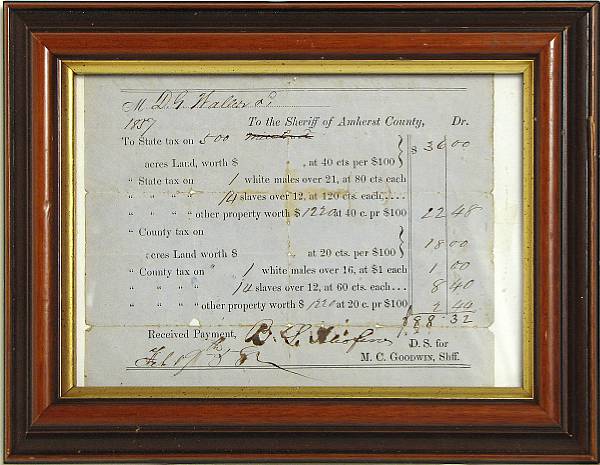 M D. G.
1857 To the Sheriff of Amherst County, Dr.
To State tax on 500
acres Land, worth $ , at 40 cts per $100 } $ 36 00
" State tax on 1 white males over 21, at 80 cts each
" " " " 14 slaves over 12, at 120 cts. each.....
" " " " other property worth $ 1220 at 40 c. pr $100 22 48
" County tax on
acres Land worth $ at 20 cts. per $100 } 18 00
" County tax on " 1 white males over 16, at $1 each 1 00
" " " " 14 slaves over 12, at 60 cts. each.... 8 40
" " " " other property worth $ 1220 at 20 c. pr $100 2 44
$88.32
Received Payment, B. S. D. S. for
Feb M. C. GOODWIN, Shff.